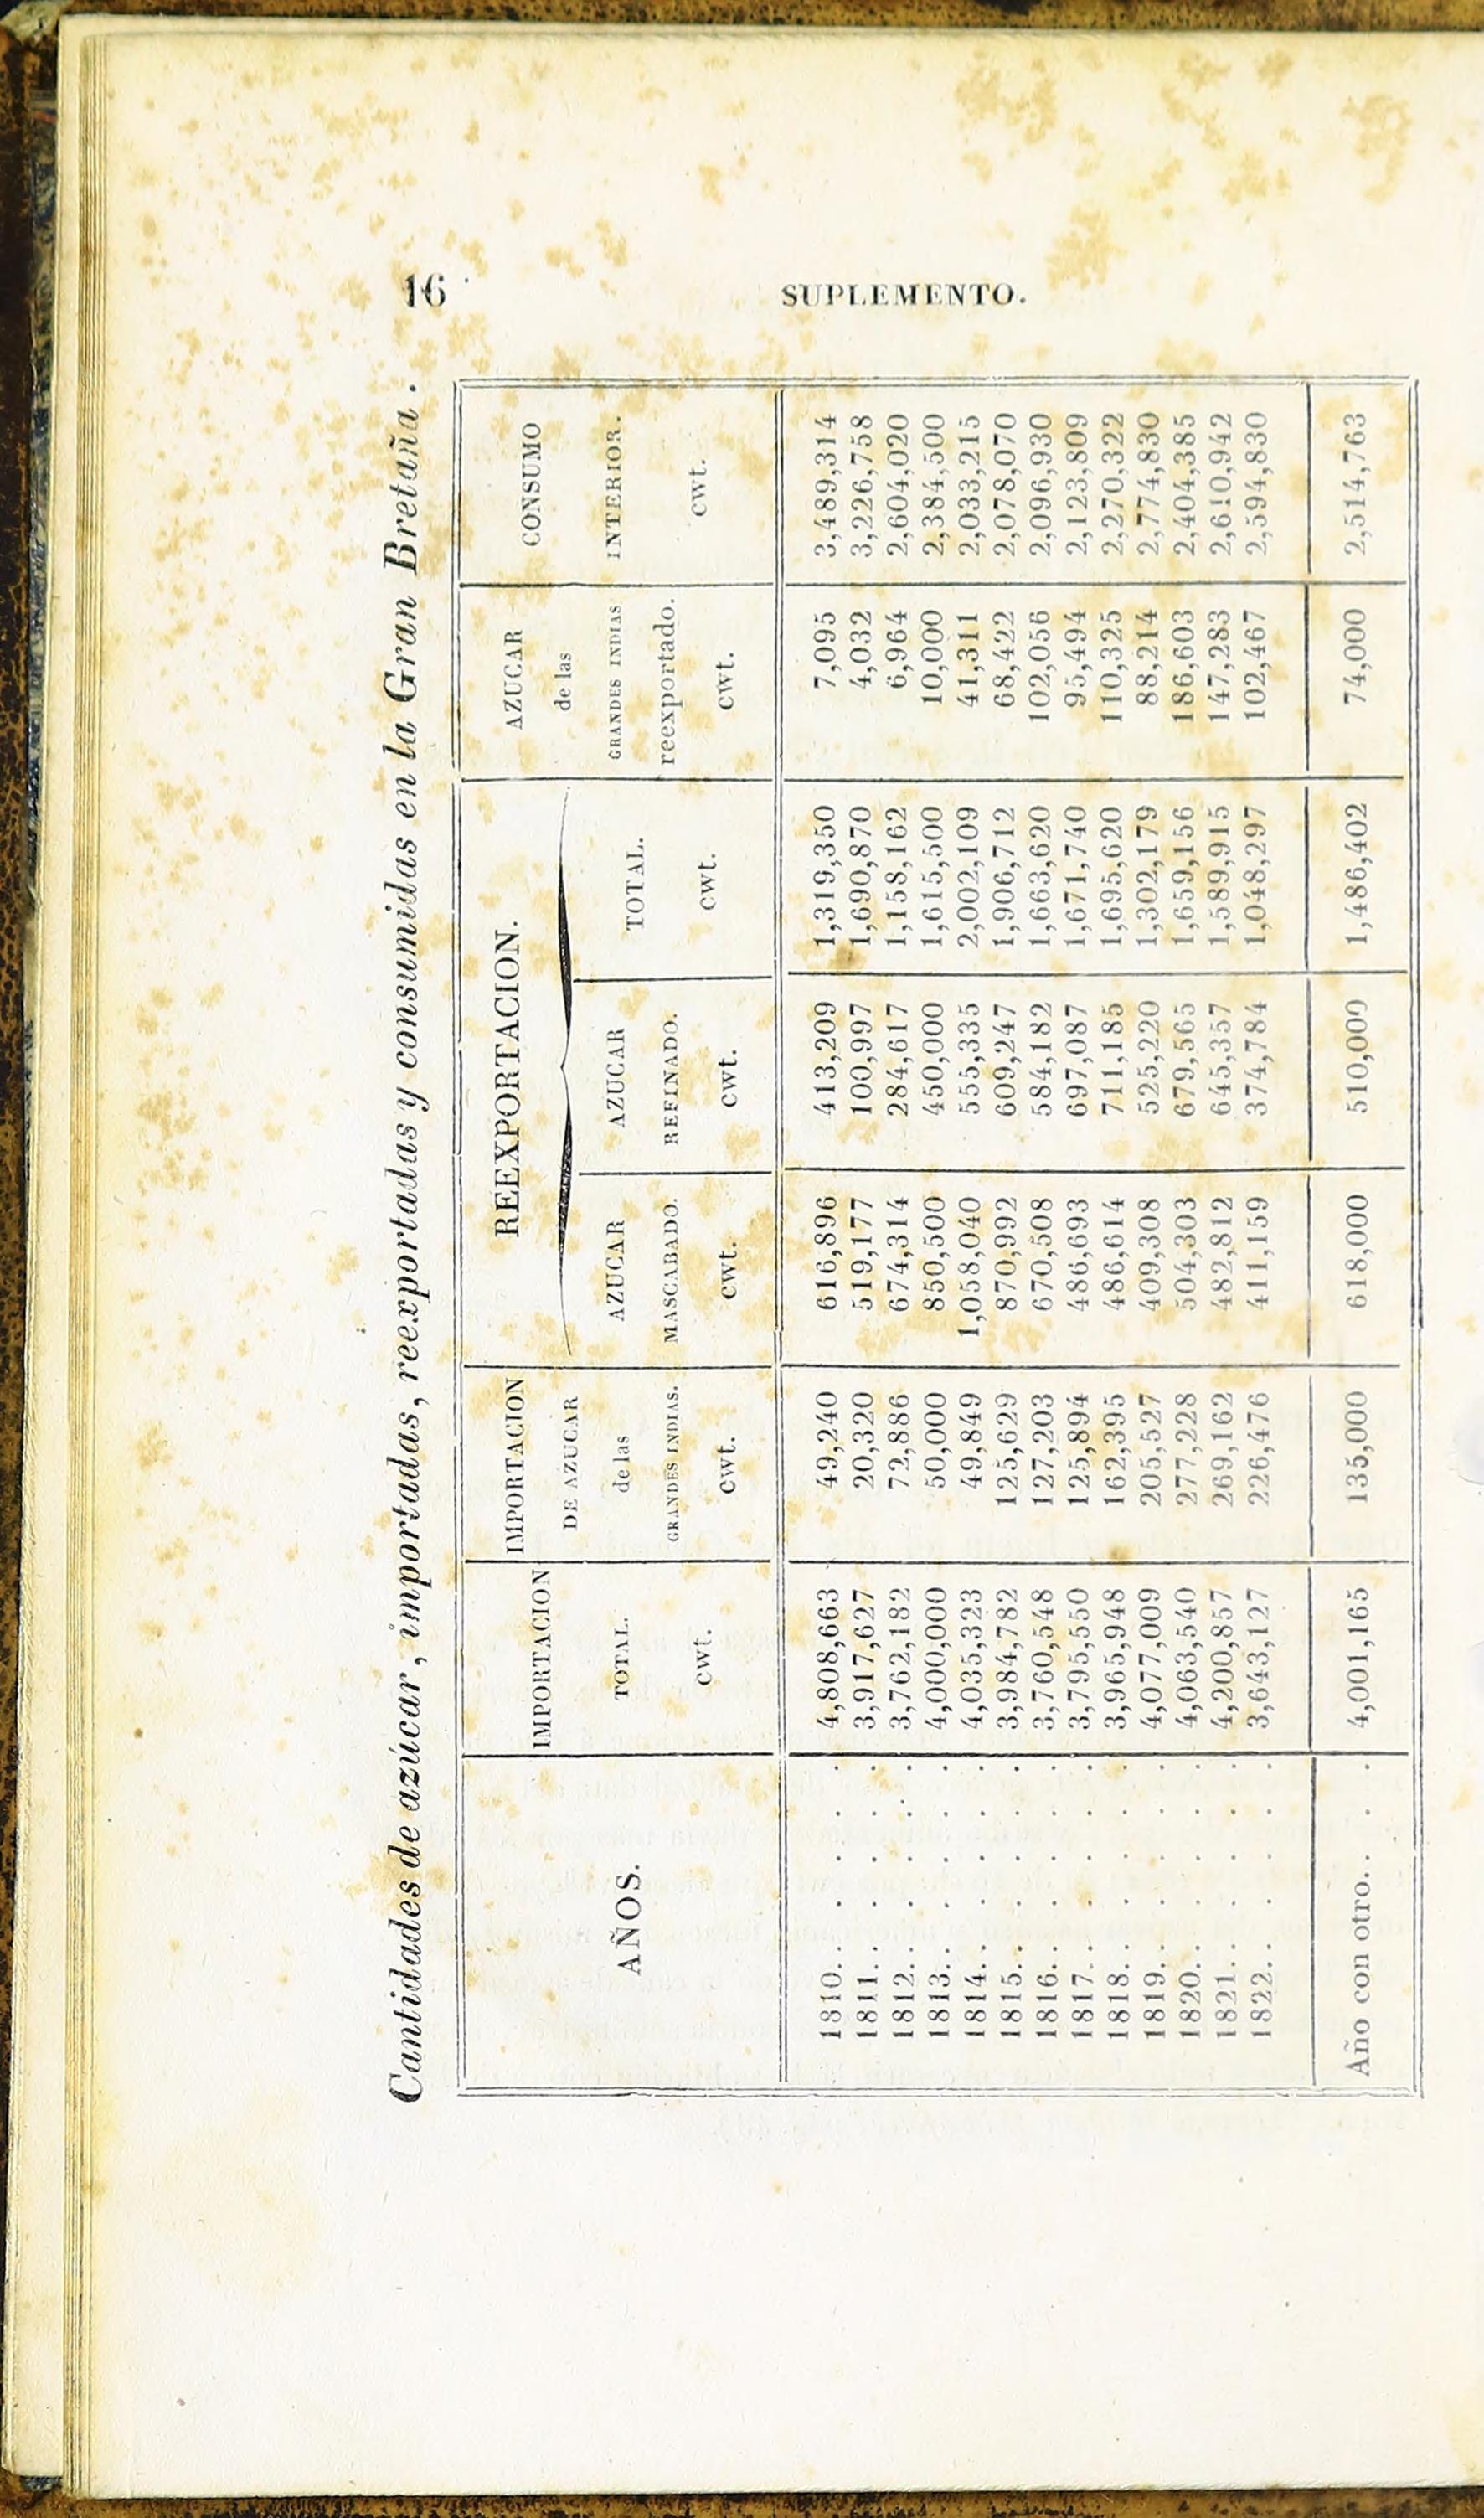 16 SUPLEMENTO.
Cantidades de azúcar, importadas, reexportadas y consumidas en la Gran Bretaña.
AÑOS. IMPORTACION TOTAL. cwt. IMPORTACION DE AZUCAR de las GRANDES INDIAS. cwt. REEXPORTACION. AZUCAR MASCABADO. cwt. AZUCAR REFINADO. cwt. TOTAL. cwt. AZUCAR de las GRANDES INDIAS reexportado. cwt. CONSUMO INTERIOR. cwt.
1810. . . . . 4,808,663 49,240 616,896 413,209 1,319,350 7,095 3,489,314
1811. . . . . 3,917,627 20,320 519,177 100,997 1,690,870 4,032 3,226,758
1812. . . . . 3,762,182 72,886 674,314 284,617 1,158,162 6,964 2,604,020
1813. . . . . 4,000,000 50,000 850,500 450,000 1,615,500 10,000 2,384,500
1814. . . . . 4,035,323 49,849 1,058,040 555,335 2,002,109 41,311 2,033,215
1815. . . . . 3,984,782 125,629 870,992 609,247 1,906,712 68,422 2,078,070
1816. . . . . 3,760,548 127,203 670,508 584,182 1,663,620 102,056 2,096,930
1817. . . . . 3,795,550 125,894 486,693 697,087 1,671,740 95,494 2,123,809
1818. . . . . 3,965,948 162,395 486,614 711,185 1,695,620 110,325 2,270,322
1819. . . . . 4,077,009 205,527 409,308 525,220 1,302,179 88,214 2,774,830
1820. . . . . 4,063,540 277,228 504,303 679,565 1,659,156 186,603 2,404,385
1821. . . . . 4,200,857 269,162 482,812 645,357 1,589,915 147,283 2,610,942
1822. . . . . 3,643,127 226,476 411,159 374,784 1,048,297 102,467 2,594,830
Año con otro. . . . 4,001,165 135,000 618,000 510,000 1,486,402 74,000 2,514,763